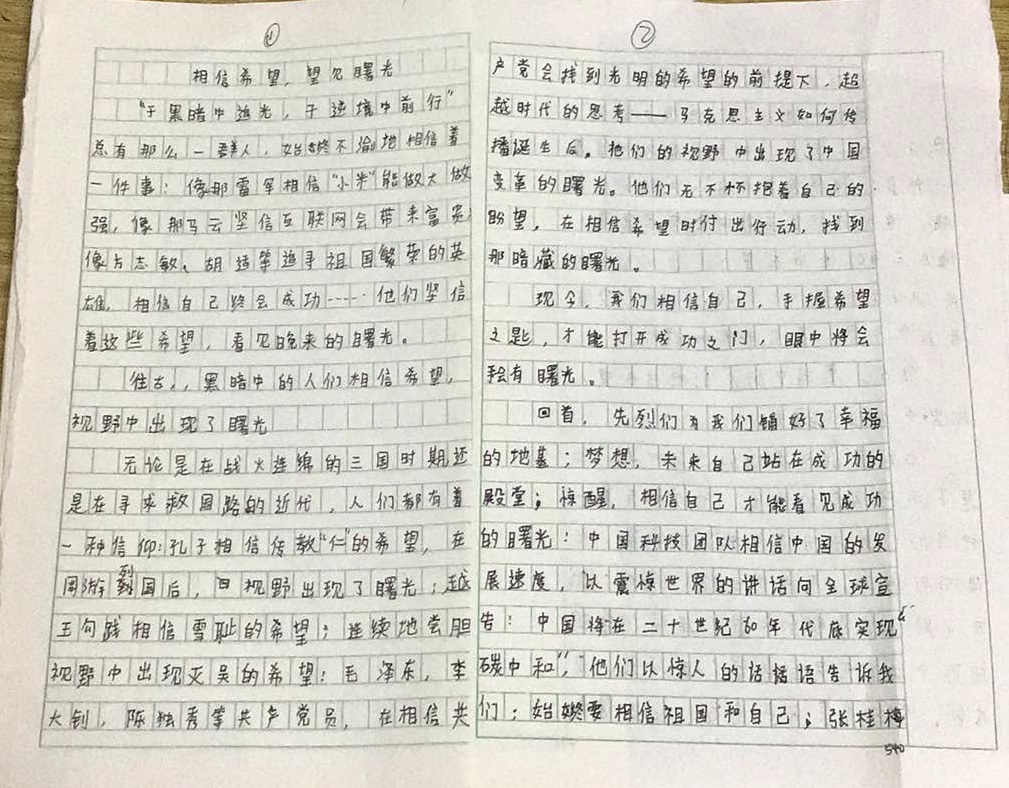 ①
相信希望，望见曙光
“于黑暗中追光，于逆境中前行”
总有那么一群人，始终不渝地相信着
一件事：像那雷军相信“小米”能做大做
强，像那马云坚信互联网会带来富贵，
像方志敏、胡适等追寻祖国繁荣的英
雄，相信自己终会成功……他们坚信
着这些希望，看见晚来的曙光。
往古，黑暗中的人们相信希望，
视野中出现了曙光
无论是在战火连绵的三国时期还
是在寻求救国路的近代，人们都有着
一种信仰：孔子相信传教“仁”的希望，在
周游列国后，视野出现了曙光；越
王勾践相信雪耻的希望；连续地尝胆
视野中出现灭吴的希望；毛泽东，李
大钊，陈独秀等共产党员，在相信共
②
产党会找到光明的希望的前提下，超
越时代的思考——马克思主义如何传
播诞生后。他们的视野中出现了中国
变革的曙光。他们无不怀抱着自己的
盼望，在相信希望时付出行动，找到
那暗藏的曙光。
现今，我们相信自己，手握希望
之匙，才能打开成功之门，眼中将会
会有曙光。
回首，先烈们为我们铺好了幸福
的地基；梦想，未来自己站在成功的
殿堂；惊醒，相信自己才能看见成功
的曙光：中国科技团队相信中国的发
展速度，以震惊世界的讲话向全球宣
告：中国将在二十世纪60年代底实现“
碳中和”，他们以惊人的话语告诉我
们：始终要相信祖国和自己；张桂梅
540